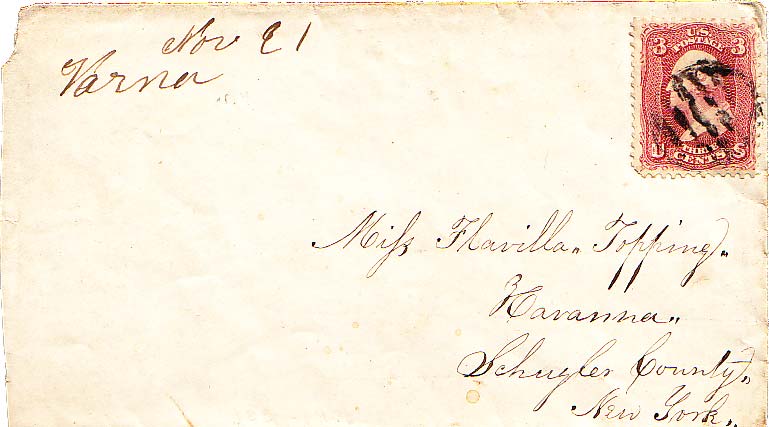 Nov 21
Varna
U.S.
POSTAGE
3 3
THREE
U CENTS S
Miss Flavilla Topping.
Havanna.
Schuyler County,
New York.